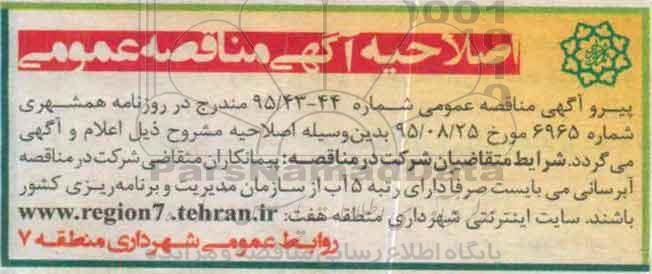 اصلاحیه آگهی مناقصه عمومی
پیرو آگهی مناقصه عمومی شماره ۴۴-۹۵/۴۳ مندرج در روزنامه همشهری
شماره ۶۹۶۵ مورخ ۹۵/۰۸/۲۵ بدین‌وسیله اصلاحیه مشروح ذیل اعلام و آگهی
می‌گردد. شرایط متقاضیان شرکت در مناقصه: پیمانکاران متقاضی شرکت در مناقصه
آبرسانی می‌بایست صرفا دارای رتبه ۵ آب از سازمان مدیریت و برنامه‌ریزی کشور
باشند. سایت اینترنتی شهرداری منطقه هفت: www.region7.tehran.ir
روابط عمومی شهرداری منطقه ۷
ParsNamadData
پایگاه اطلاع رسانی مناقصه و مزایده